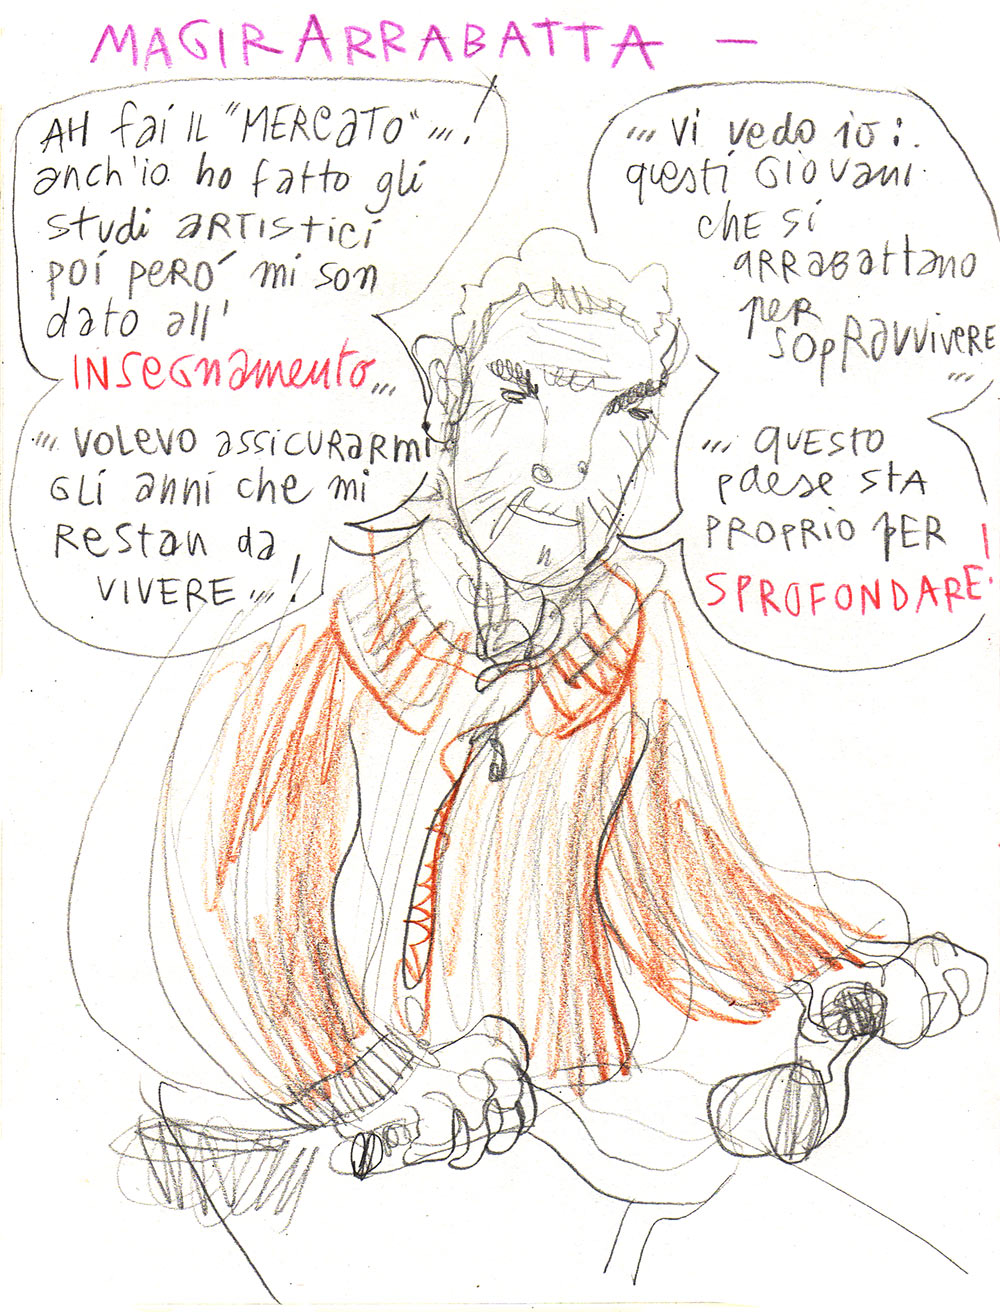 MAGIRARRABATTA –
AH fai IL "MERCATO"...!
anch'io ho fatto gli
studi ARTISTICI
poi però mi son
dato all'
INSEGNAMENTO...
... VOLEVO ASSICURARMI
GLI ANNI CHE MI
RESTAN DA
VIVERE...!
... Vi vedo io:
questi Giovani
CHE SI
ARRABATTANO
PER
SOPRAVVIVERE
...
... QUESTO
PAESE STA
PROPRIO PER
SPROFONDARE!